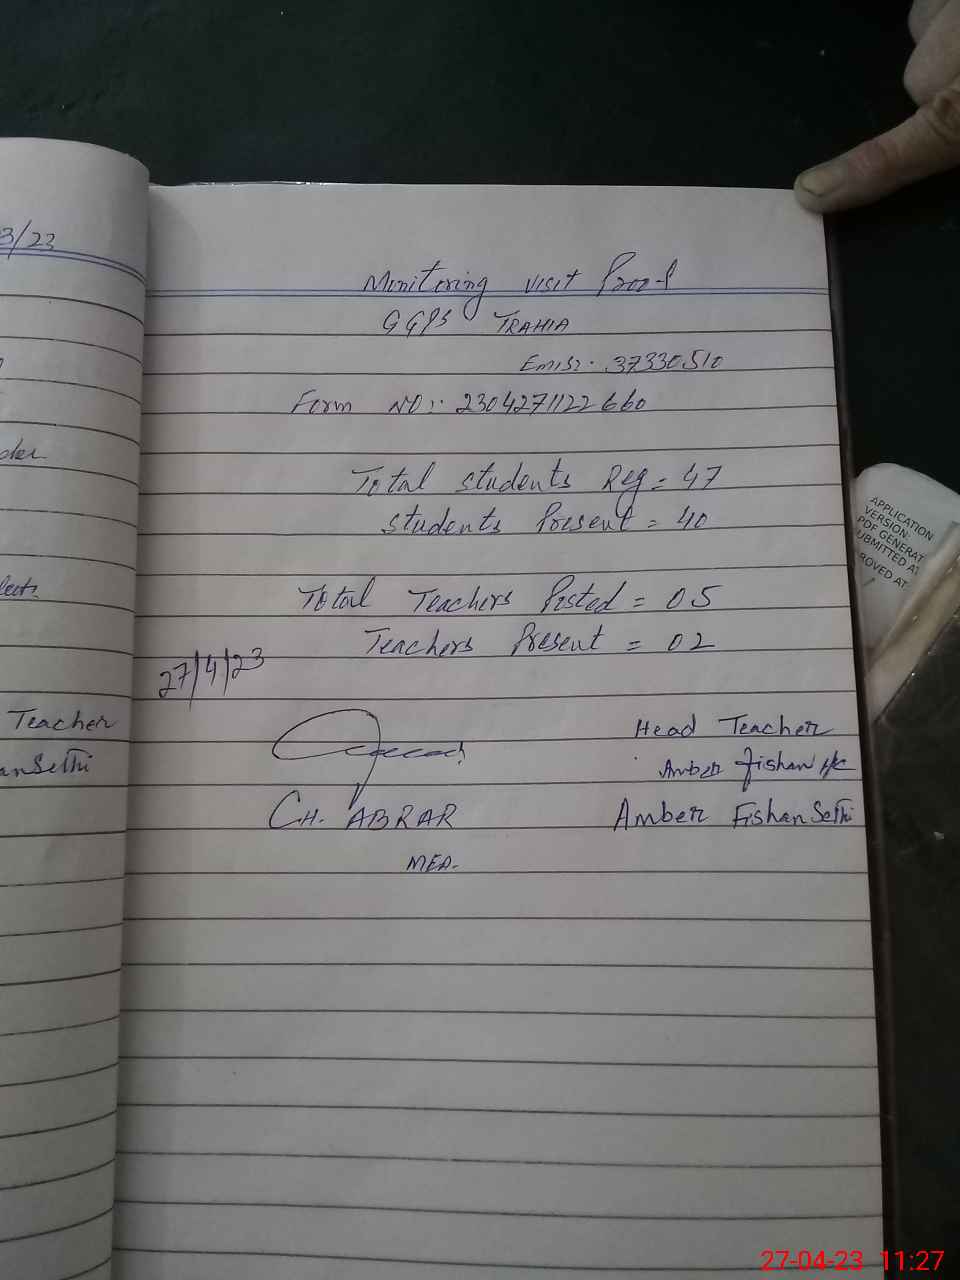 3/23
der
Teacher
anSethi
Monitoring visit Proof
GGPS TRAHIA
Emis:. 37330510
Form NO:. 2304271122660
Total students Reg = 47
students Present = 40
Total Teachers Posted = 05
Teachers Present = 02
27/4/23
Head Teacher
Amber Fishan
CH. ABRAR
Amber Fishan Sethi
MEA.
APPLICATION
VERSION:
PDF GENERAT
UBMITTED AT
ROVED AT
27-04-23 11:27